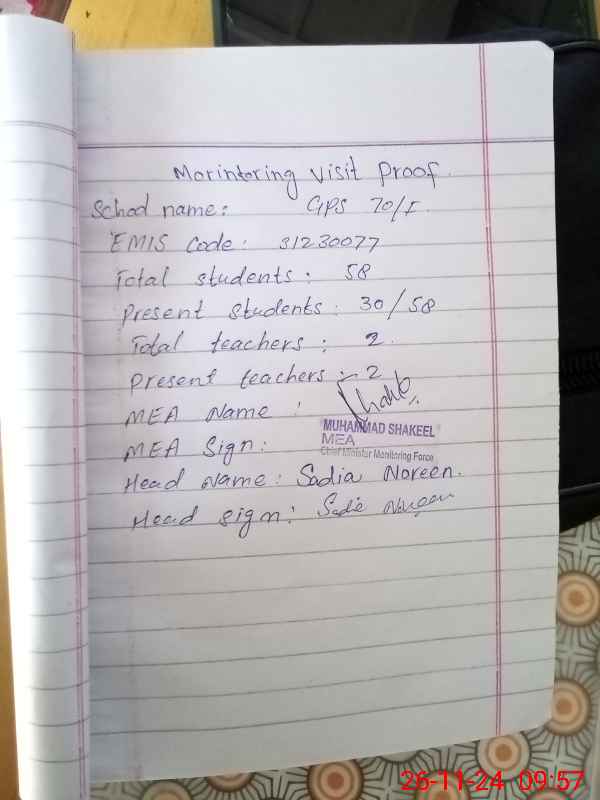 Morintoring Visit Proof.
School name: GPS 70/F.
EMIS Code: 31230077
Total students: 58
Present students: 30/58
Total teachers: 2.
Present teachers:- 2
MEA Name:
MUHAMMAD SHAKEEL
MEA
MEA Sign:
Chief Minister Monitoring Force
Head Name: Sadia Noreen.
Head sign: Sadia Noreen
26-11-24 09:57